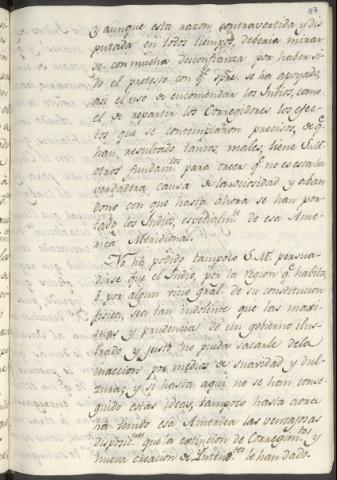 87
y aunque esta razon, contravertida y dis
putada en todos tiempos, deberia mirar
se con mucha desconfianza por haber si
do el pretesto con q.e spre. se ha apoyado,
asi el uso de encomendar los Indios, como
el de repartir los Corregidores los efec
tos que se contemplaron precisos, de q.e
han resultado tantos males, tiene S.M.
otros fundam.tos para creer q.e no es esta la
verdadera causa de la ociosidad y aban
dono con que hasta ahora se han por
tado los Indios, especialm.te de esa Ame
rica Meridional.
No ha podido tampoco S.M. persua
dirse que el Indio, por la region q.e habita,
ó por algun vicio gral. de su constitucion
fisica, sea tan indolente que las maxi
mas y prudencia de un gobierno ilus
trado y justo no pueda sacarle de la
inaccion por medios de suavidad y dul
zura; y si hasta aqui no se han conse
guido estas ideas, tampoco hasta aora
ha tenido esa America las ventajosas
disposic.nes que la extincion de Corregim.tos y
nueva creacion de Intend.cas le han dado.